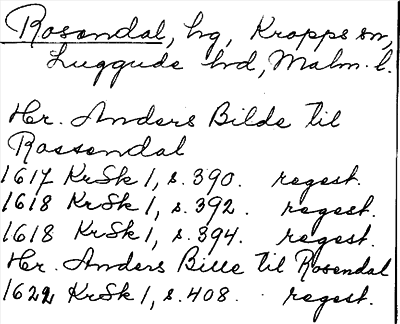 Rosendal, hg, Kropps sn,
Luggude hd, Malm. l.
Hr. Anders Bilde til
Rossendal
1617 KrSk 1, s. 390. regest.
1618 KrSk 1, s. 392. regest.
1618 KrSk 1, s. 394. regest.
Hr. Anders Bille til Rosendal
1622 KrSk 1, s. 408. regest.